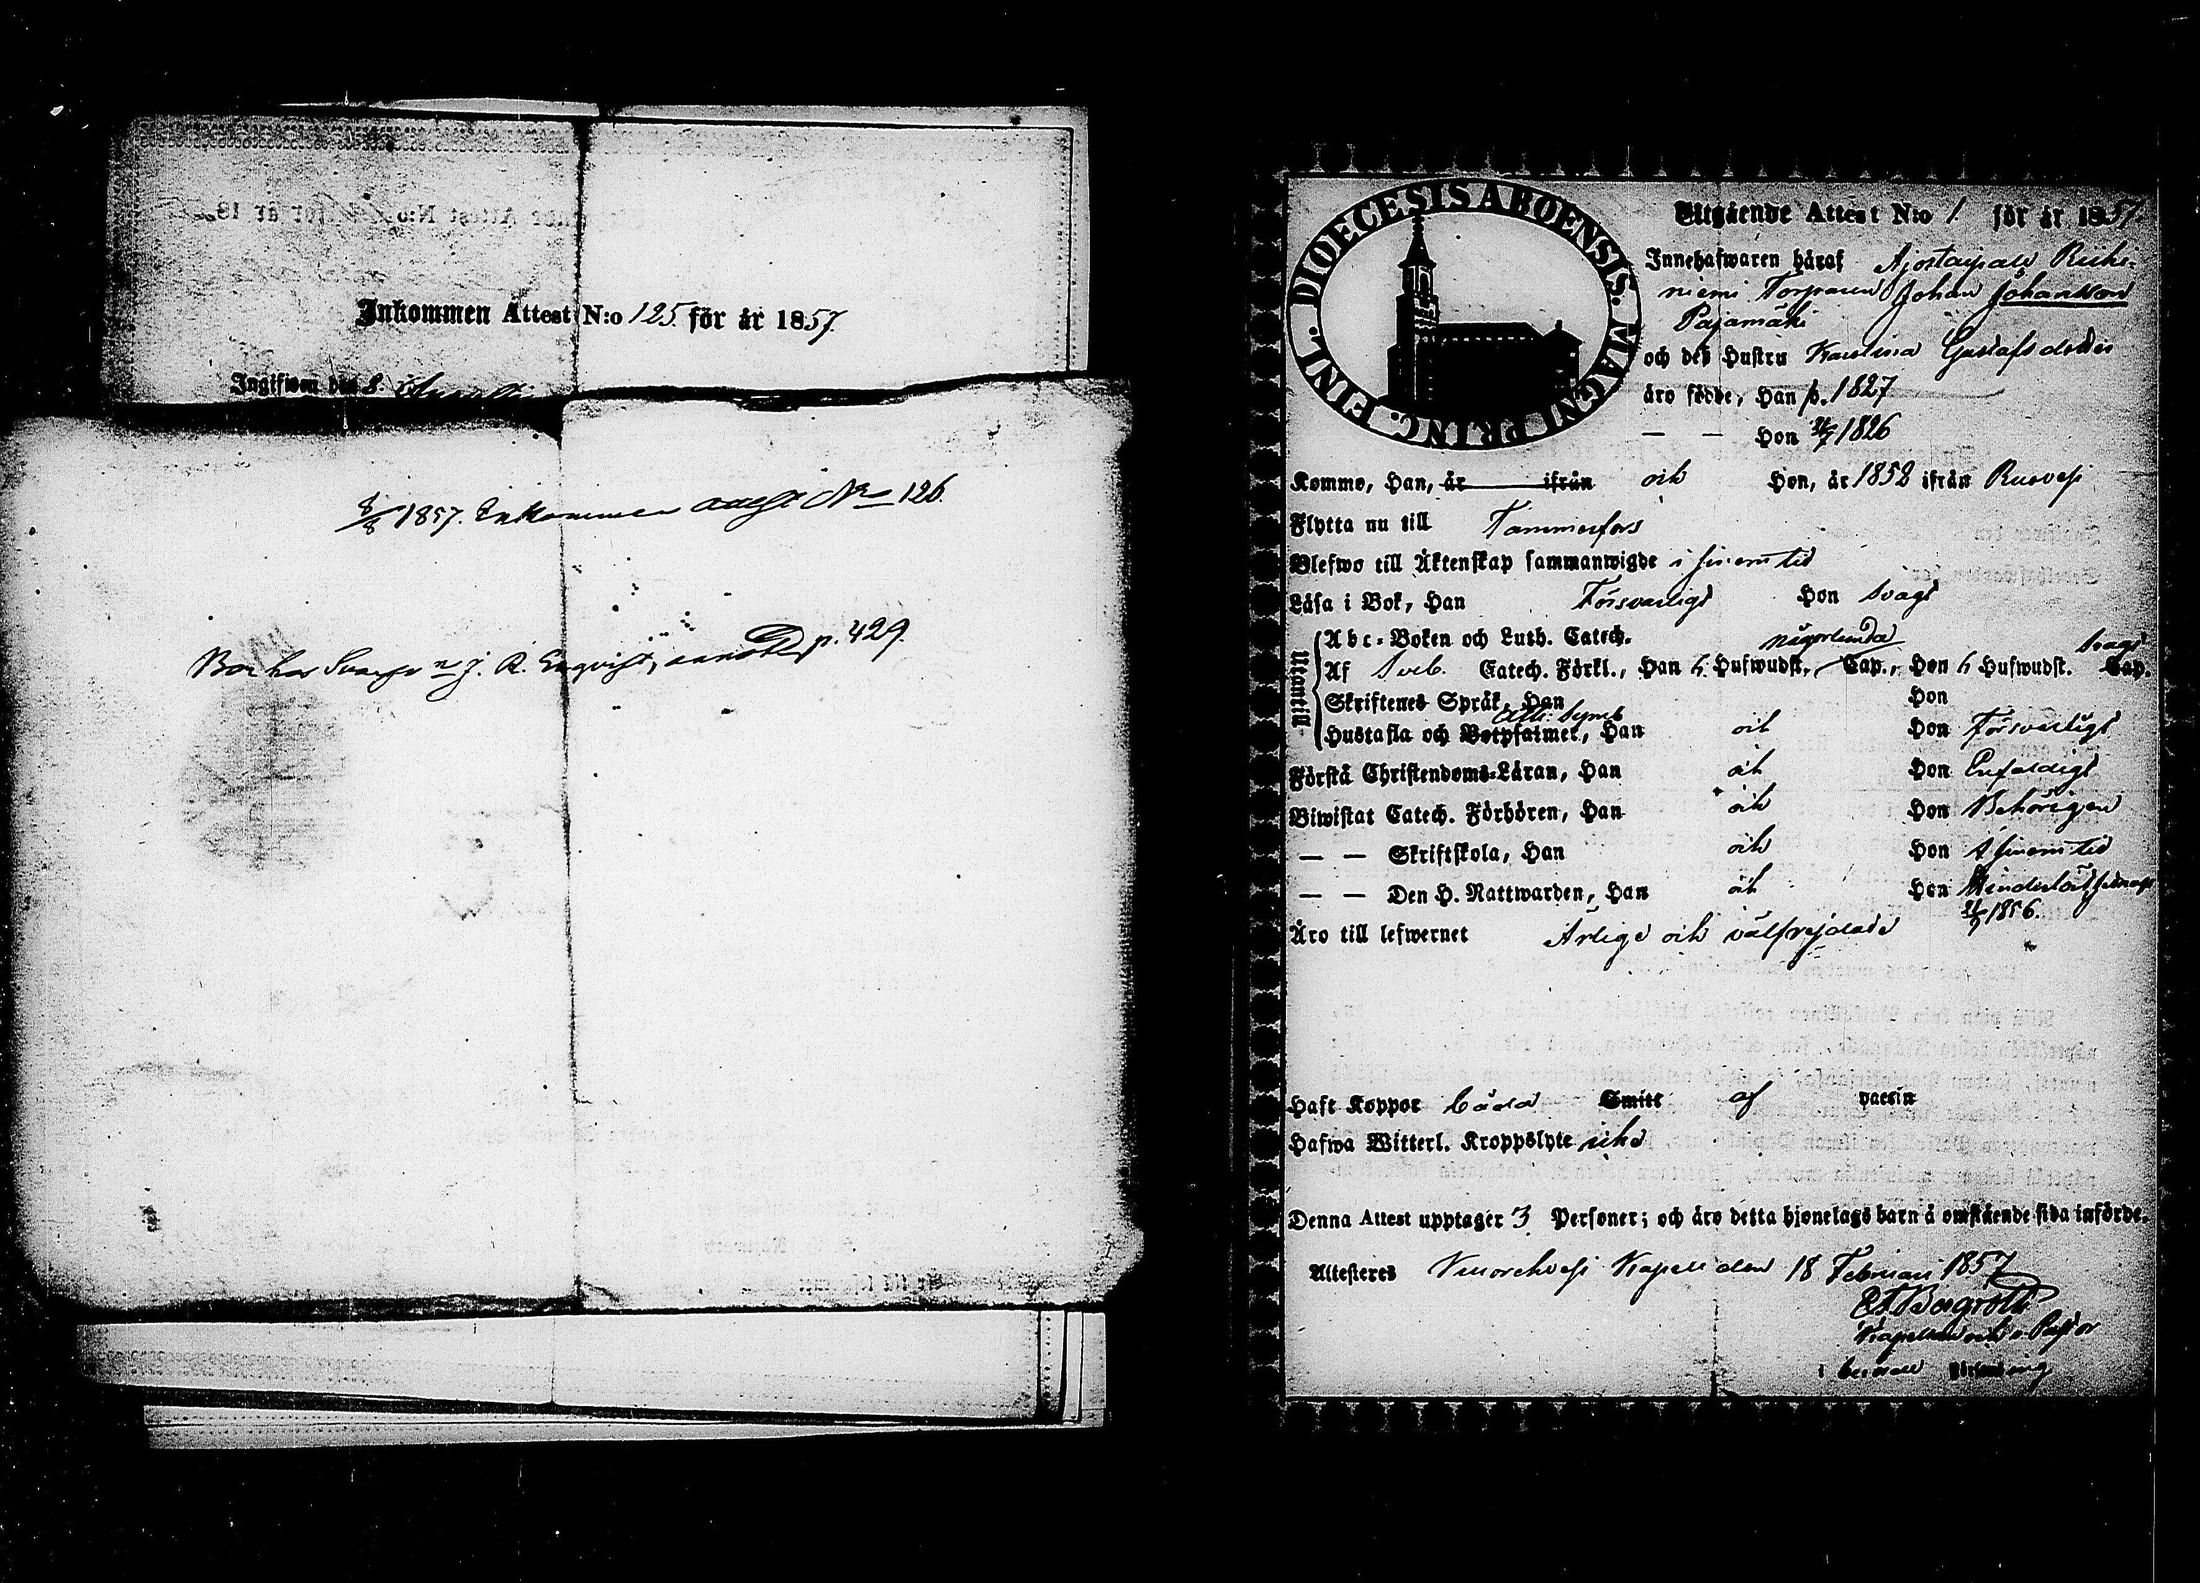 Inkommen Attest N:o 125. för år 1857.
Ingifwen den 8.
8/8 1857. Inkommen attest No 126.
Bor hos J. R. Enqvist, p. 429
DIOECESIS ABOENSIS. MAGNI PRINC. FINL.
Utgående Attest N:o 1. för år 1857.
Innehafwaren häraf Riihi-
niemi Torparen Johan Johansson
Pajamäki
och des Hustru Karolina Gustafsdotter
äro födde, Han p. 1827
— — Hon 1826
Kommo, Han, år ifrån och Hon, år 1852 ifrån Ruovesi
Flytta nu till Tammerfors
Blefwo till Äktenskap sammanwigde i sinom tid
Läsa i Bok, Han Försvarligt Hon svagt
Utantill
Abc-Boken och Luth. Catech. någorlunda svagt
Af Sveb. Catech. Förkl., Han 6. Hufwudst. Cap., Hon 6 Hufwudst. Cap.
Skriftenes Språk, Han Hon
Ath. Symb
Hustafla och Botpsalmer, Han och Hon Försvarligt
Förstå Christendoms-Läran, Han och Hon Enfaldigt
Biwistat Catech. Förhören, Han och Hon Behörigen
— — Skriftskola, Han och Hon i sinom tid
— — Den H. Nattwarden, Han och Hon
1856.
Äro till lefwernet Ärlige och välfrejdade
Haft Koppor båda Smitt af vaccin
Hafwa Witterl. Kroppslyte icke
Denna Attest upptager 3 Personer; och äro detta hjonelags barn å omstående sida införde.
Attesteras Kuorehvesi Kapell den 18 Februari 1857
Bergroth
Kapellan och v. Pastor
i